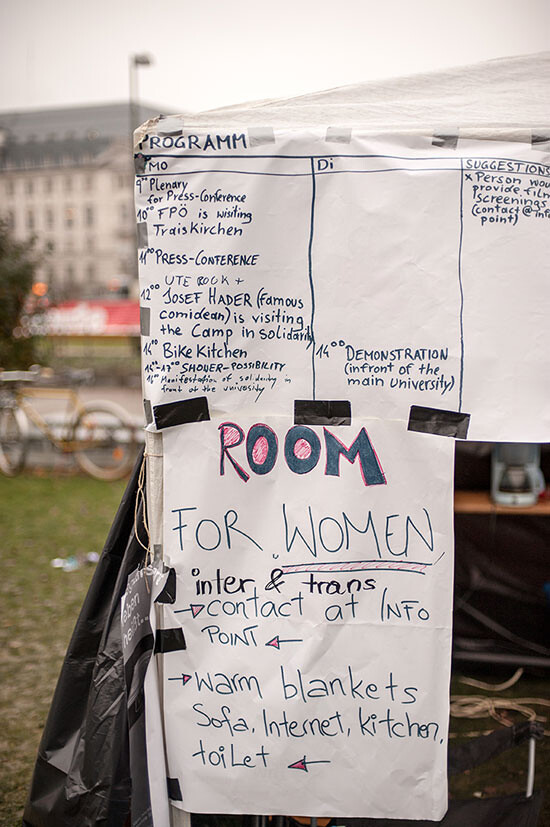 PROGRAMM
MO
9°° Plenary
for Press-Conference
10°° FPÖ is visiting
Traiskirchen
11°° PRESS-CONFERENCE
UTE BOCK +
12°° JOSEF HADER (famous
comidean) is visiting
the Camp in solidarity
14°° Bike Kitchen
14°°-17°° SHOWER-POSSIBILITY
Manifestation of solidarity in
front of the university
Di
14°° DEMONSTRATION
(infront of the
main University)
SUGGESTIONS
x Person wou
provide film
screenings
(contact @ info
point)
ROOM
FOR WOMEN,
inter & trans
→ contact at INFO
POINT ←
→ warm blankets
Sofa, Internet, kitchen,
toilet ←